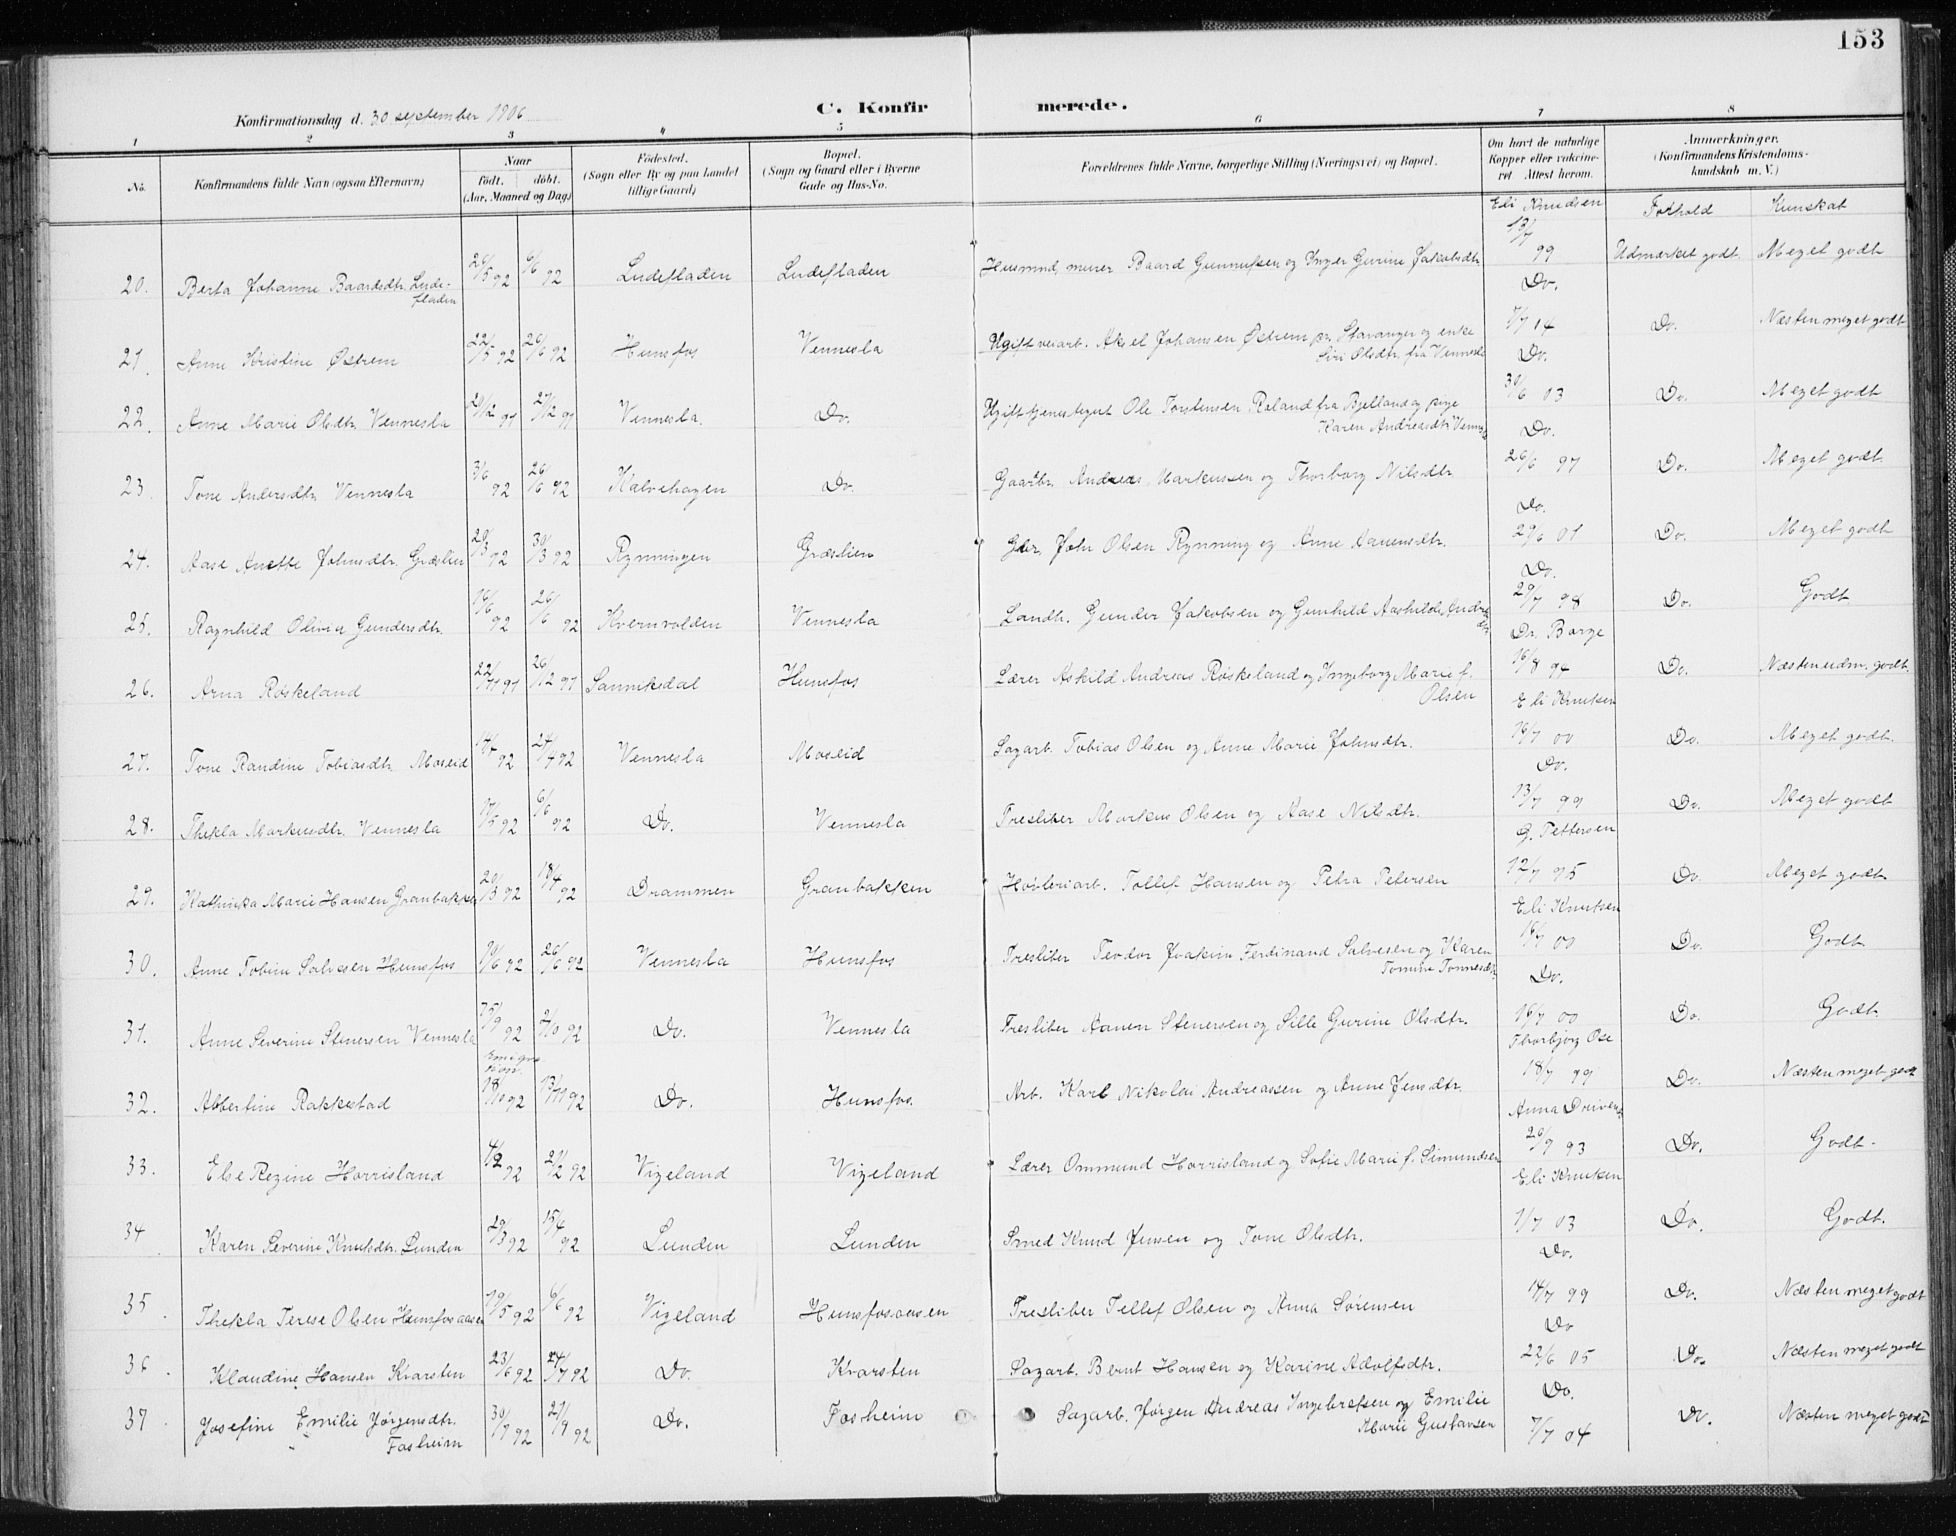 153
Konfirmationsdag d. 30 september 1906
C. Konfir merede.
1 2 3 4 5 6 7 8
No. Konfirmandens fulde Navn (ogsaa Efternavn) Naar födt. döbt. (Aar, Maaned og Dag) Födested. (Sogn eller By og paa Landet tillige Gaard) Bopæl. (Sogn og Gaard eller i Byerne Gade og Hus-No. Forældrenes fulde Navne, borgerlige Stilling (Næringsvei) og Bopæl. Om havt de naturlige Kopper eller vaccineret Attest herom. Anmærkninger. (Konfirmandens Kristendomskundskab m. V.)
Eli Knudsen Forhold Kunskab
20. Berta Johanne Baardsdtr. Ludefladen 26/5 92 6/6 92 Ludefladen Ludefladen Husmnd, murer Baard Gunnufsen og Inger Gurine Jakobsdtr 13/7 99 Udmærket godt. Meget godt
Do.
21. Anne Kristine Østrem 22/5 92 26/6 92 Hunsfos Vennesla Ugift verarb. Aksel Johansen Østrem pr. Stavanger og enke Siri Olsdtr. fra Vennesla 7/7 04 Do. Næsten meget godt
Do.
22. Anne Marie Olsdtr. Vennesla 27/12 91 Vennesla. Do. Ugift tjenestegut Ole Torstensen Røland fra Bjelland og pige Karen Andreasdtr Vennesla 30/6 03 Do. Meget godt
Do.
23. Tone Andersdtr. Vennesla 3/6 92 26/6 92 Halvehagen Do. Gaarbr. Andreas Markussen og Thorborg Nilsdtr. 26/6 97 Do. Meget godt
Do.
24. Aase Anette Johnsdtr. Græslien 20/3 92 30/3 92 Rynningen Græslien Gbr. John Olsen Rynning og Anne Aanensdtr. 29/6 01 Do. Meget godt
Do.
25. Ragnhild Olivia Gundersdtr. 16/6 92 26/6 92 Kvernvolden Vennesla Landh. Gunder Jakobsen og Gunhild Aashilde 29/7 98 Do. Godt
Dr. Borge
26. Arna Røskeland 22/11 91 26/12 91 Sannikedal Hunsfos Lærer Askild Andreas Røskeland og Ingeborg Marie f. Olsen 16/8 94 Do. Næsten udm. godt.
Eli Knutsen
27. Tone Randine Tobiasdtr. Moseid 92 24/4 92 Vennesla Moseid Sagarb. Tobias Olsen og Anne Marie Johnsdtr. 16/7 00 Do. Meget godt.
Do.
28. Thekla Markusdtr. Vennesla 17/5 92 6/6 92 Do. Vennesla Træsliber Markus Olsen og Aase Nilsdtr. 13/7 99 Do. Meget godt
G. Pettersen
29. Kathinka Marie Hansen Granbakken 20/3 92 18/4 92 Drammen Granbakken Høvleriarb. Tollef Hansen og Petra Petersen 12/7 95 Do. Meget godt
Eli Knutsen
30. Anne Tobine Salvesen Hunsfos 10/6 92 26/6 92 Vennesla Hunsfos Træsliber Teodor Joakim Ferdinand Salvesen og Karen Tomine Tonnesdtr 16/7 00 Do. Godt
Do.
31. Anne Severine Stenersen Vennesla 25/9 92 2/10 92 Do. Vennesla Træsliber Aanen Stenersen og Sille Gurine Olsdtr. 16/7 00 Do. Godt
Thorbjørg Ose
32. Albertine Rakkestad 18/10 92 13/11 92 Do. Hunsfos Arb. Karl Nikolai Andreassen og Anne Jensdtr. 18/7 99 Do. Næsten meget godt
Anna
33. Else Regine Horrisland 4/2 92 21/2 92 Vigeland Vigeland Lærer Ommund Horrisland og Sofie Marie f. Simundsen 20/9 93 Do. Godt.
Eli Knutsen
34 Karen Severine Knutsdtr. Lunden 29/3 92 15/4 92 Lunden Lunden Smed Knud Jensen og Tone Olsdtr. 1/7 03 Do. Godt.
Do.
35. Thekla Terese Olsen Hunsfosaasen 19/5 92 6/6 92 Vigeland Hunsfosaasen Træsliber Tellef Olsen og Anna Sørensen 14/7 99 Do. Næsten meget godt
Do
36. Klaudine Hansen Kvarsten 23/6 92 24/7 92 Do. Kvarsten Sagarb. Bernt Hansen og Karine Adolfsdtr. 22/6 05 Do. Næsten meget godt
Do.
37 Josefine Emilie Jørgensdtr. Fosheim 30/7 92 21/9 92 Do. Fosheim Sagarb. Jørgen Andreas Ingebretsen og Emilie Marie Gustavsen 7/7 04 Do. Næsten meget godt